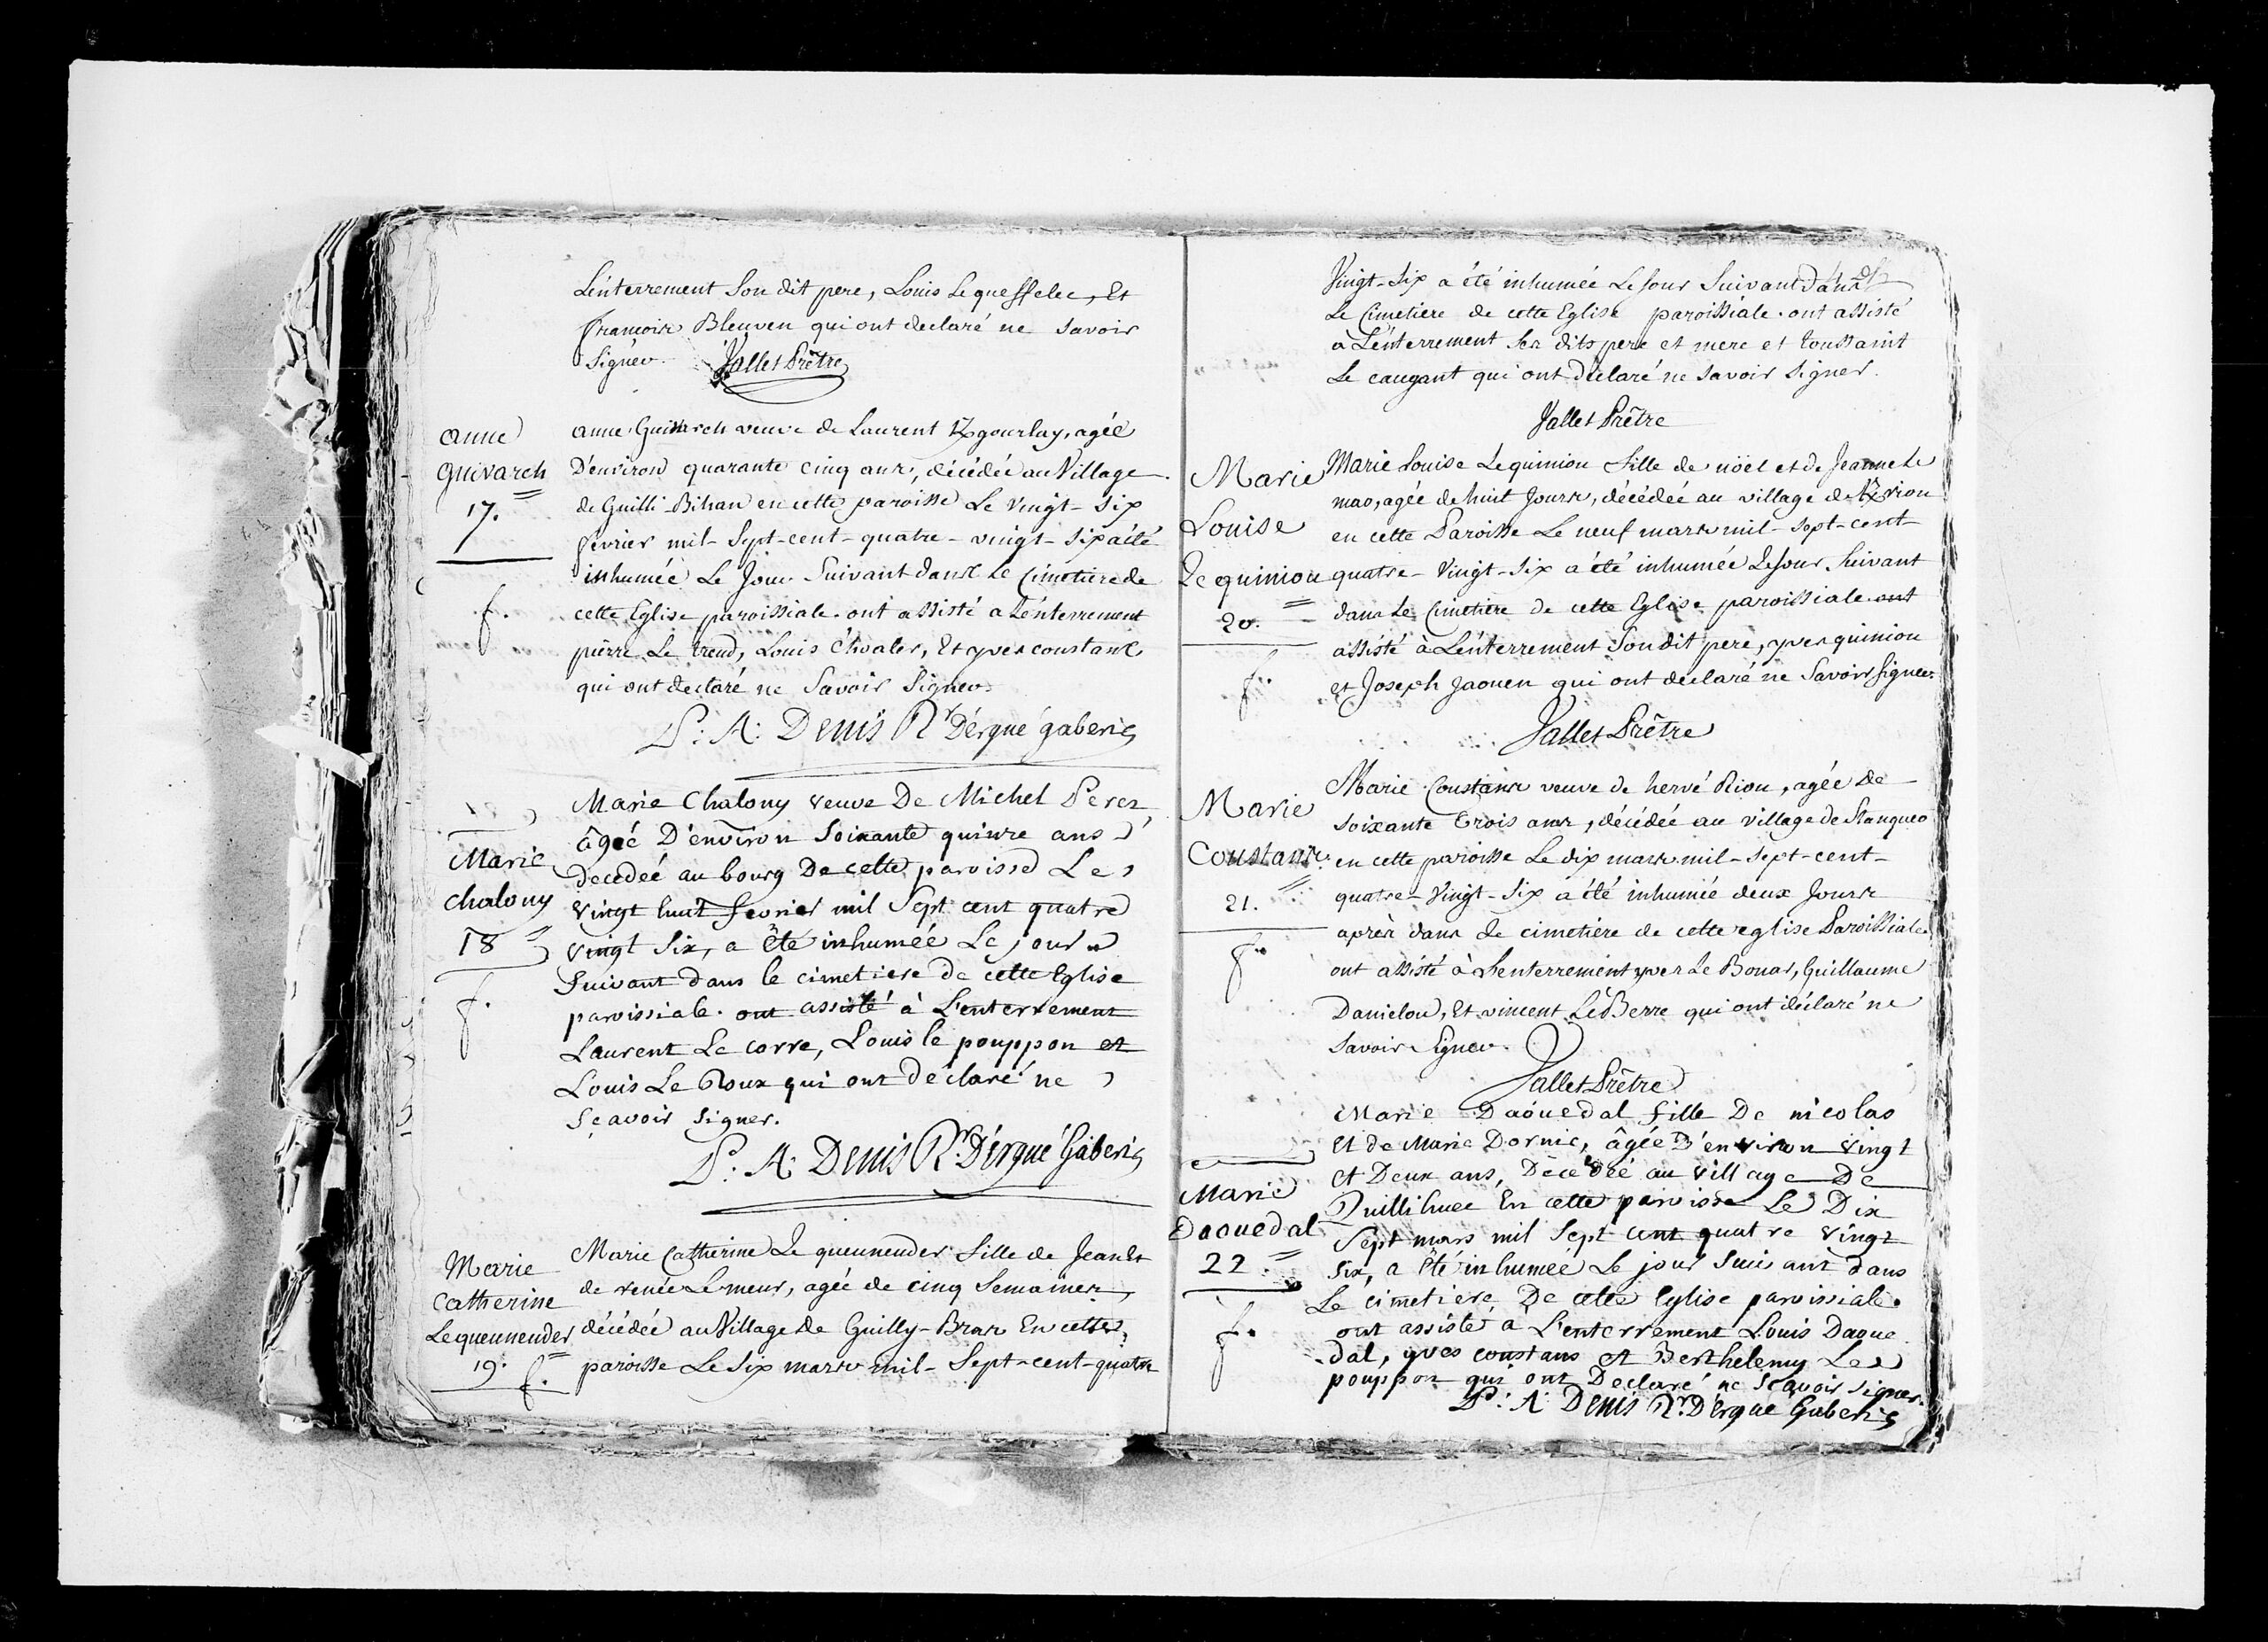 Lénterrement Son dit pere, Louis Le queffelec, Et
francoise Bleuven qui ont declaré ne savoir
Signer. Jallet Prêtre
anne
Guivarch
17.
f.
anne Guivarch veuve de Laurent Kgourlay, agée
D'environ quarante cinq ans, décédée au Village
de Guilli-Bihan en cette paroisse Le vingt-six
fevrier mil-Sept-cent-quatre-vingt-six a été
inhumée Le Jour Suivant dans Le Cimetiere de
cette Eglise paroissiale. ont assisté a Lénterrement
pierre Le trend, Louis Chvaler, Et yves constans
qui ont declaré ne Savoir Signer.
P: A: Denis Rr D'érgué gaberic
Marie
chalony
18
f.
Marie Chalony veuve De Michel Peres,
âgée D'environ Soixante quinze ans
decedée au bourg De cette paroisse Le
vingt huit fevrier mil Sept cent quatre
vingt Six, a été inhumée Le jour
Suivant dans le cimetiere de cette Eglise
paroissiale. ont assisté à L'enterrement
Laurent Le corre, Louis le pouppon et
Louis Le Roux qui ont déclaré ne
Sçavoir signer.
P. A. Denis Rr. D'érgué Gaberic
Marie
Catherine
Le queunender
19. f.
Marie Catherine Le queunender fille de Jean Et
de renée Le meur, agée de cinq Semaines,
décédée au Village de Guilly-Bras En cette
paroisse Le Six mars mil-Sept-cent-quatre
Vingt-Six a été inhumée Le Jour Suivant dans
Le Cimetiere de cette Eglise paroissiale. ont assisté
à Lénterrement Ses dits pere et mere et toussaint
Le caugant qui ont declaré ne savoir signer.
Jallet Prêtre
Marie
Louise
Le quiniou
20.
f.
Marie Louise Le quiniou fille de nöel et de Jeanne Le
mao, agée de huit Jours, décédée au village de Krion
en cette Paroisse Le neuf mars mil-sept-cent-
quatre-Vingt-Six a été inhumée Le Jour Suivant
dans Le Cimetiere de cette Eglise paroissiale. ont
assisté à Lénterrement Son dit pere, yves quiniou
et Joseph Jaouen qui ont declaré ne Savoir Signer.
Jallet Prêtre
Marie
Coustans
21.
f.
Marie Coustans veuve de hervé Riou, agée de
soixante trois ans, décédée au village de Stanqueo
en cette paroisse Le dix mars mil-Sept-cent-
quatre-Vingt-Six a été inhumée deux Jours
après dans Le cimetiere de cette eglise Paroissiale.
ont assisté à L'enterrement yves Le Bouar, Guillaume
Danielou, Et vincent Le Berre qui ont déclaré ne
savoir Signer.
Jallet Prêtre
Marie
Daouedal
22.
f.
Marie Daouedal fille De nicolas
Et de Marie Dornic, âgée D'environ vingt
et Deux ans, Décédée au village De
Quillihuec En cette paroisse Le Dix
Sept mars mil Sept cent quatre vingt
Six, a été inhumée Le jour Suivant dans
Le cimetiere De cette Eglise paroissiale.
ont assisté à L'enterrement Louis Daoue
-dal, yves constans et Berthelemy Le
pouppon qui ont Declaré ne Sçavoir signer.
P: A: Denis Rr. D'érgué Gaberic